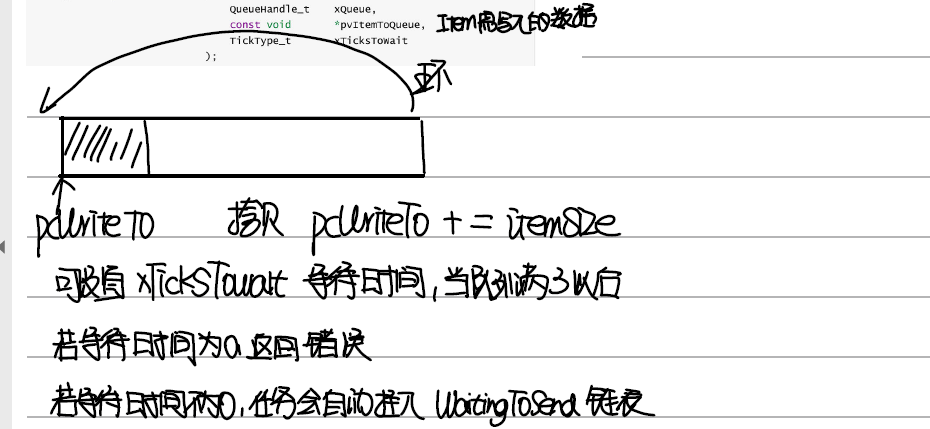 QueueHandle_t xQueue,
const void *pvItemToQueue, Item需写入的数据
TickType_t xTicksToWait
);
环
pcWriteTo 指只 pcWriteTo += itemSize
可设自 xTicksToWait 等待时间,当队列满了以后
若等待时间为0,返回错误
若等待时间不为0,任务会自动挂入 WaitingToSend 链表